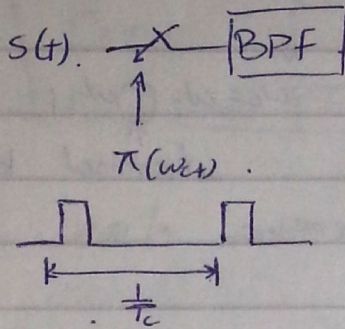 S(t). BPF
π(ωct).
1/Tc